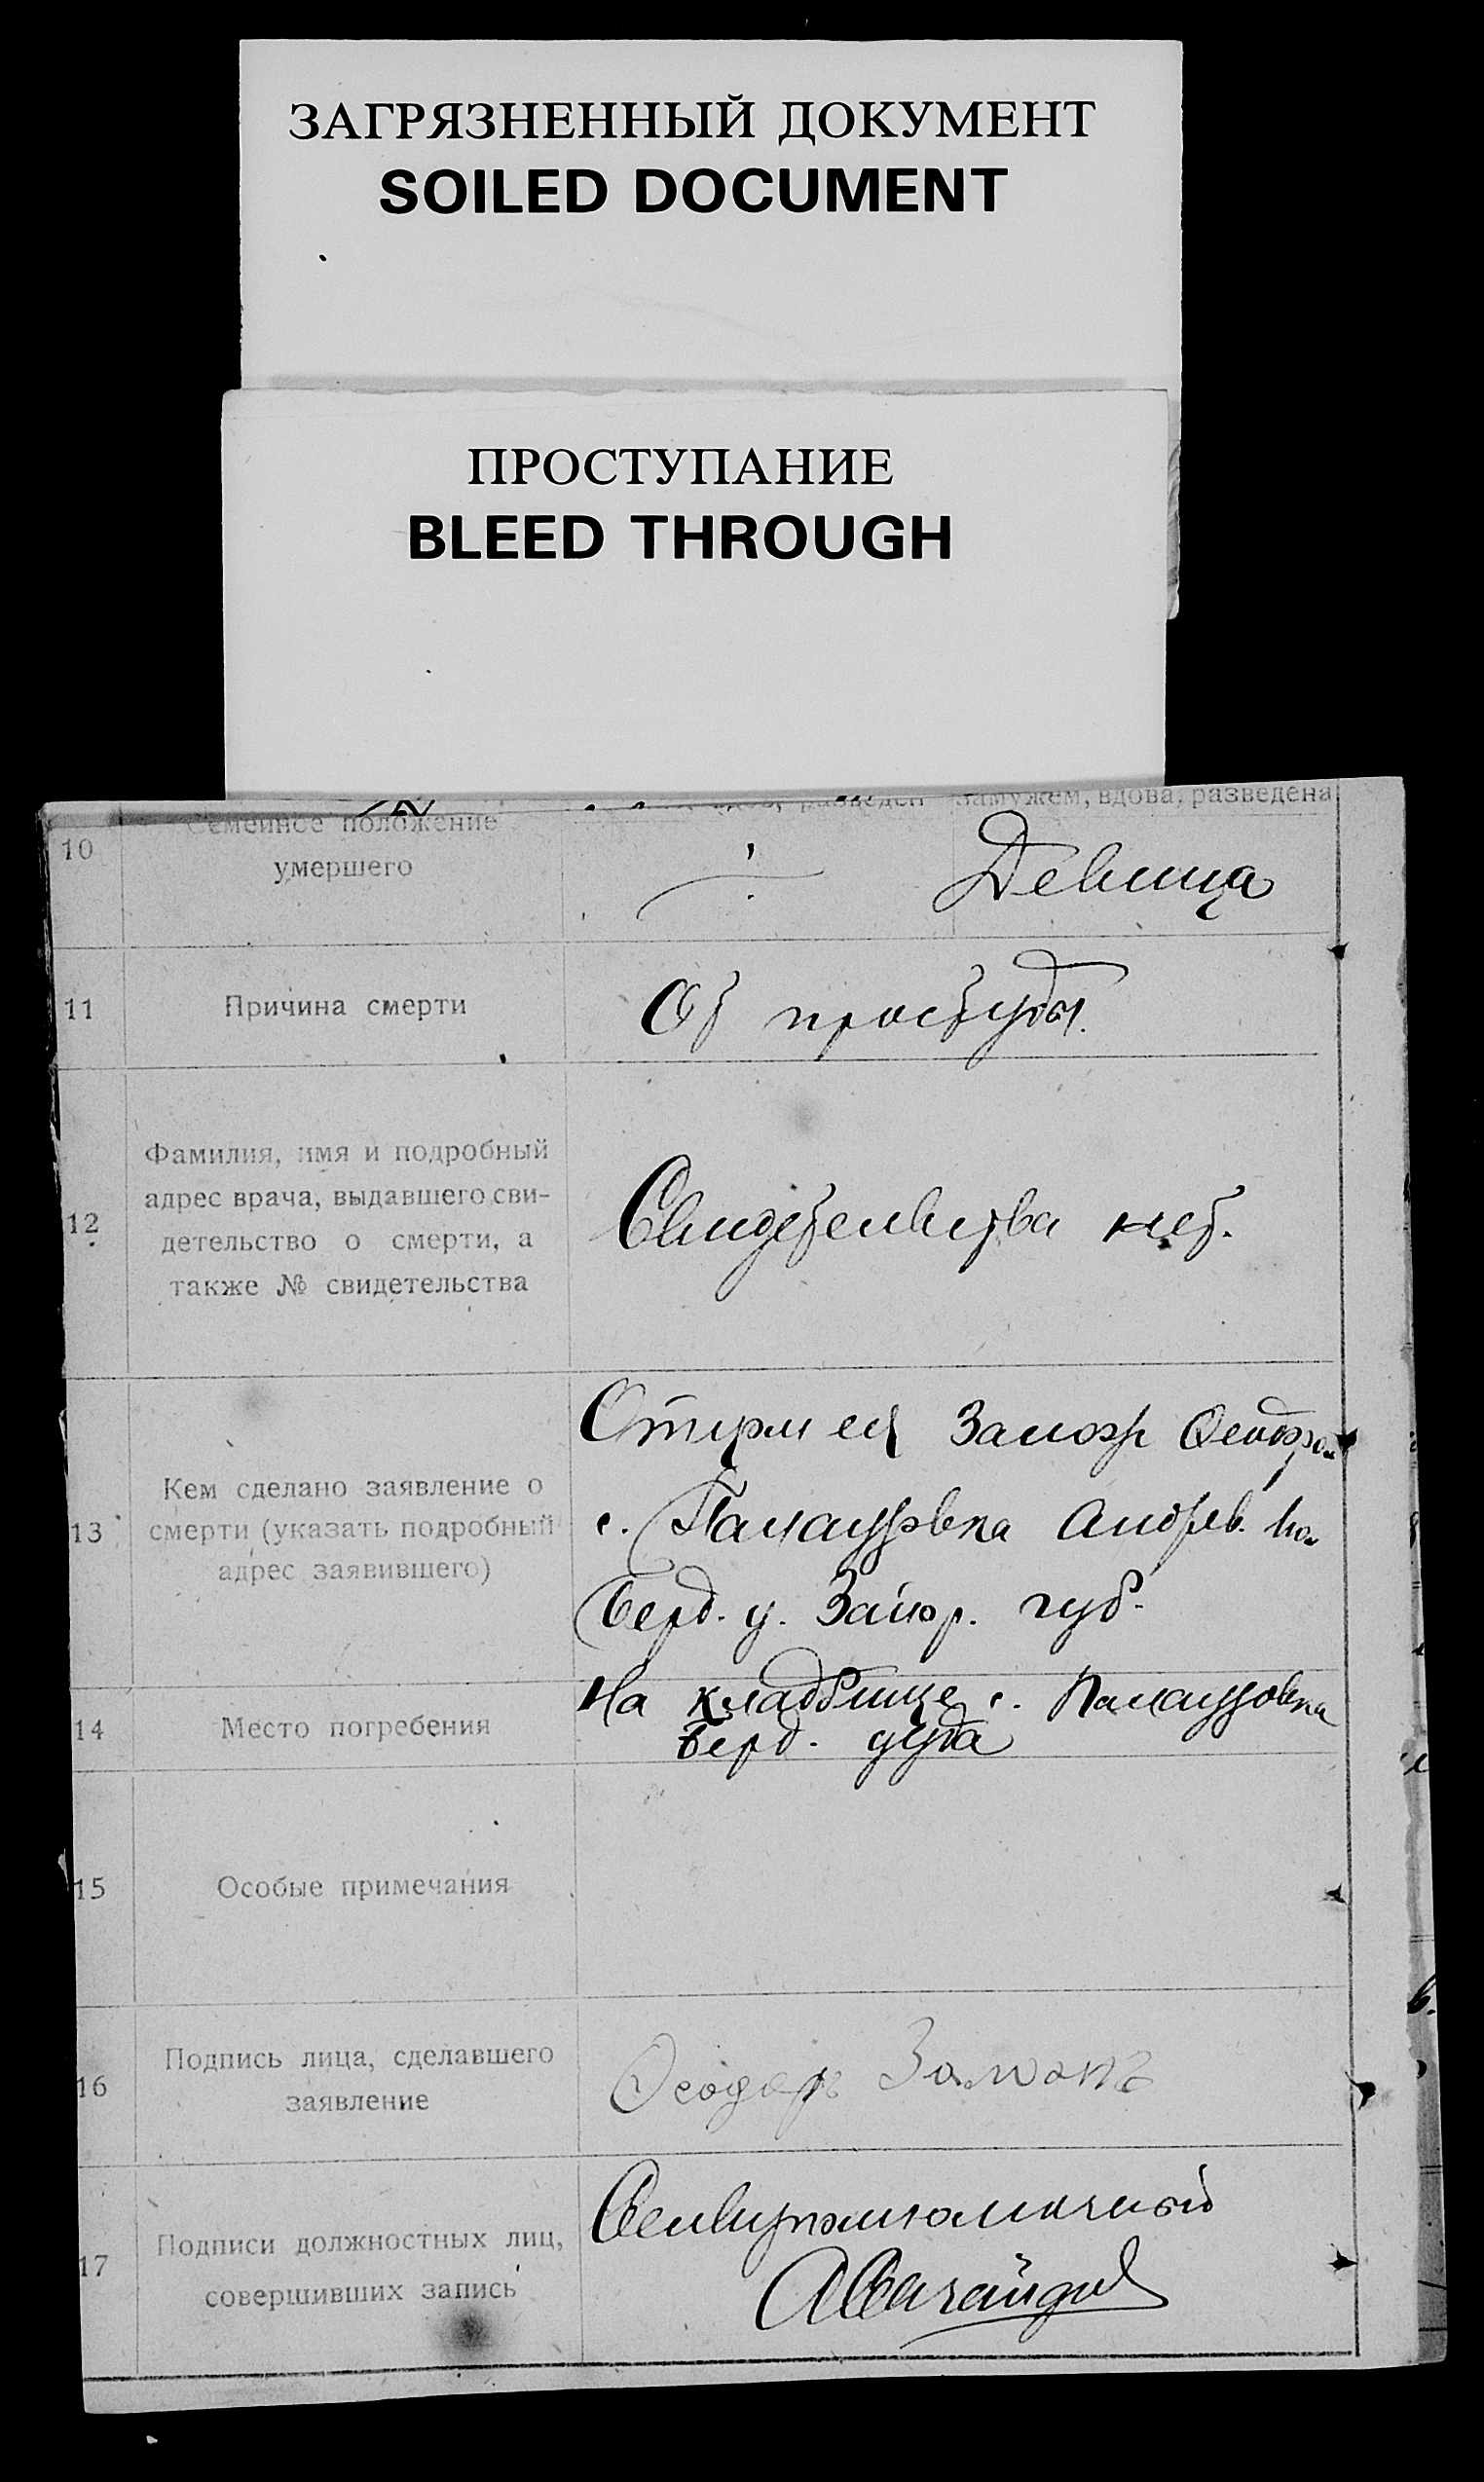 ЗАГРЯЗНЕННЫЙ ДОКУМЕНТ
SOILED DOCUMENT
ПРОСТУПАНИЕ
BLEED THROUGH
разведен замужем, вдова, разведена
10
Семейное положение
умершего
Девица
11
Причина смерти
От простуды.
12
Фамилия, имя и подробный
адрес врача, выдавшего сви-
детельство о смерти, а
также № свидетельства
Свидетельства нет.
13
Кем сделано заявление о
смерти (указать подробный
адрес заявившего)
Отцом ея
с. Андрев. во
Берд. у. Запор. губ.
14
Место погребения
На кладбище с.
Берд. уезда
15
Особые примечания
16
Подпись лица, сделавшего
заявление
Феодоръ
17
Подписи должностных лиц,
совершивших запись